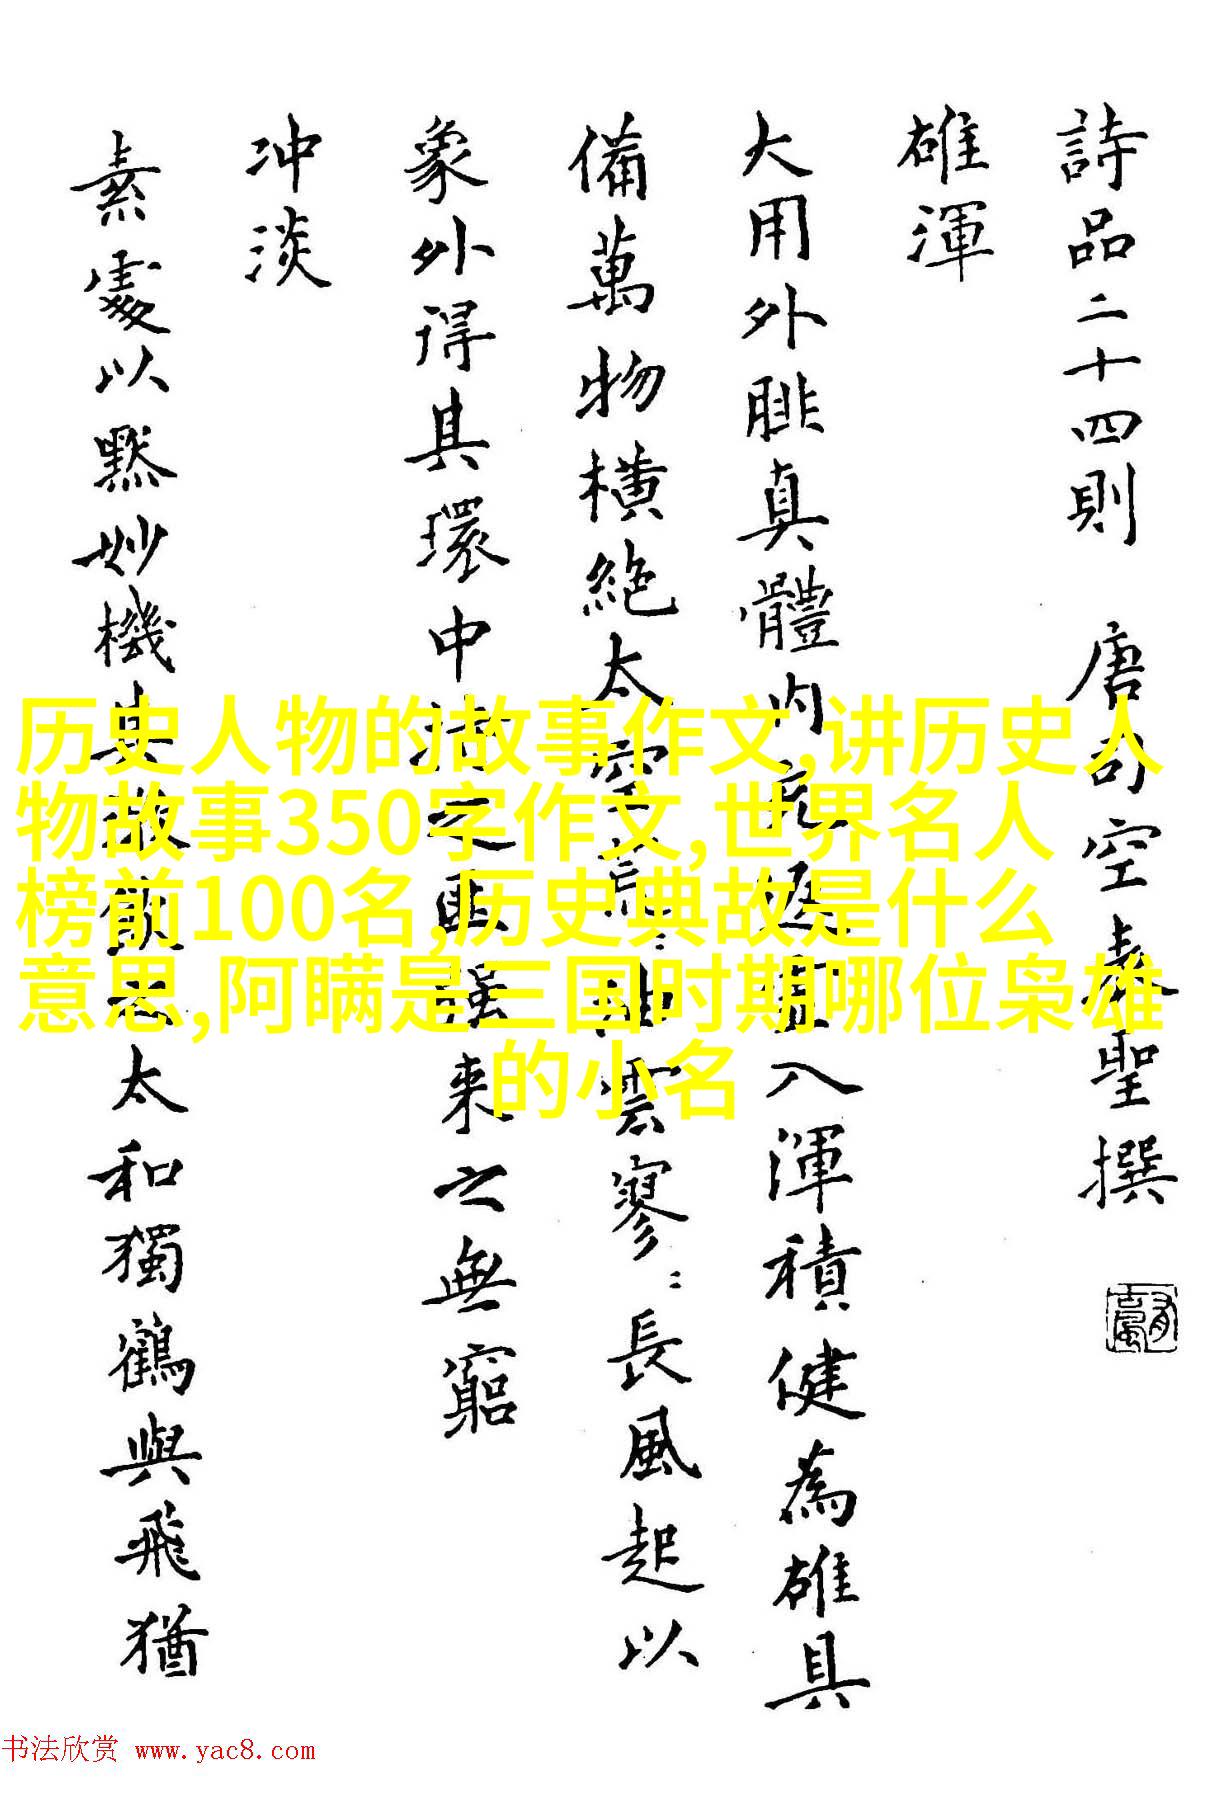 詩品二十四則 唐司空表聖撰
雄渾
大用外腓真體內充返虛入渾積健為雄具
備萬物橫絕太空荒:油雲寥:長風起以
象外得其環中持之匪強來之無窮
冲淡
素處以默妙機其微飲之太和獨鶴與飛猶
历史人物的故事作文,讲历史人
物故事350字作文,世界名人
榜前100名,历史典故是什么
意思,阿瞒是三国时期哪位枭雄
的小名
书法欣赏 www.yac8.com